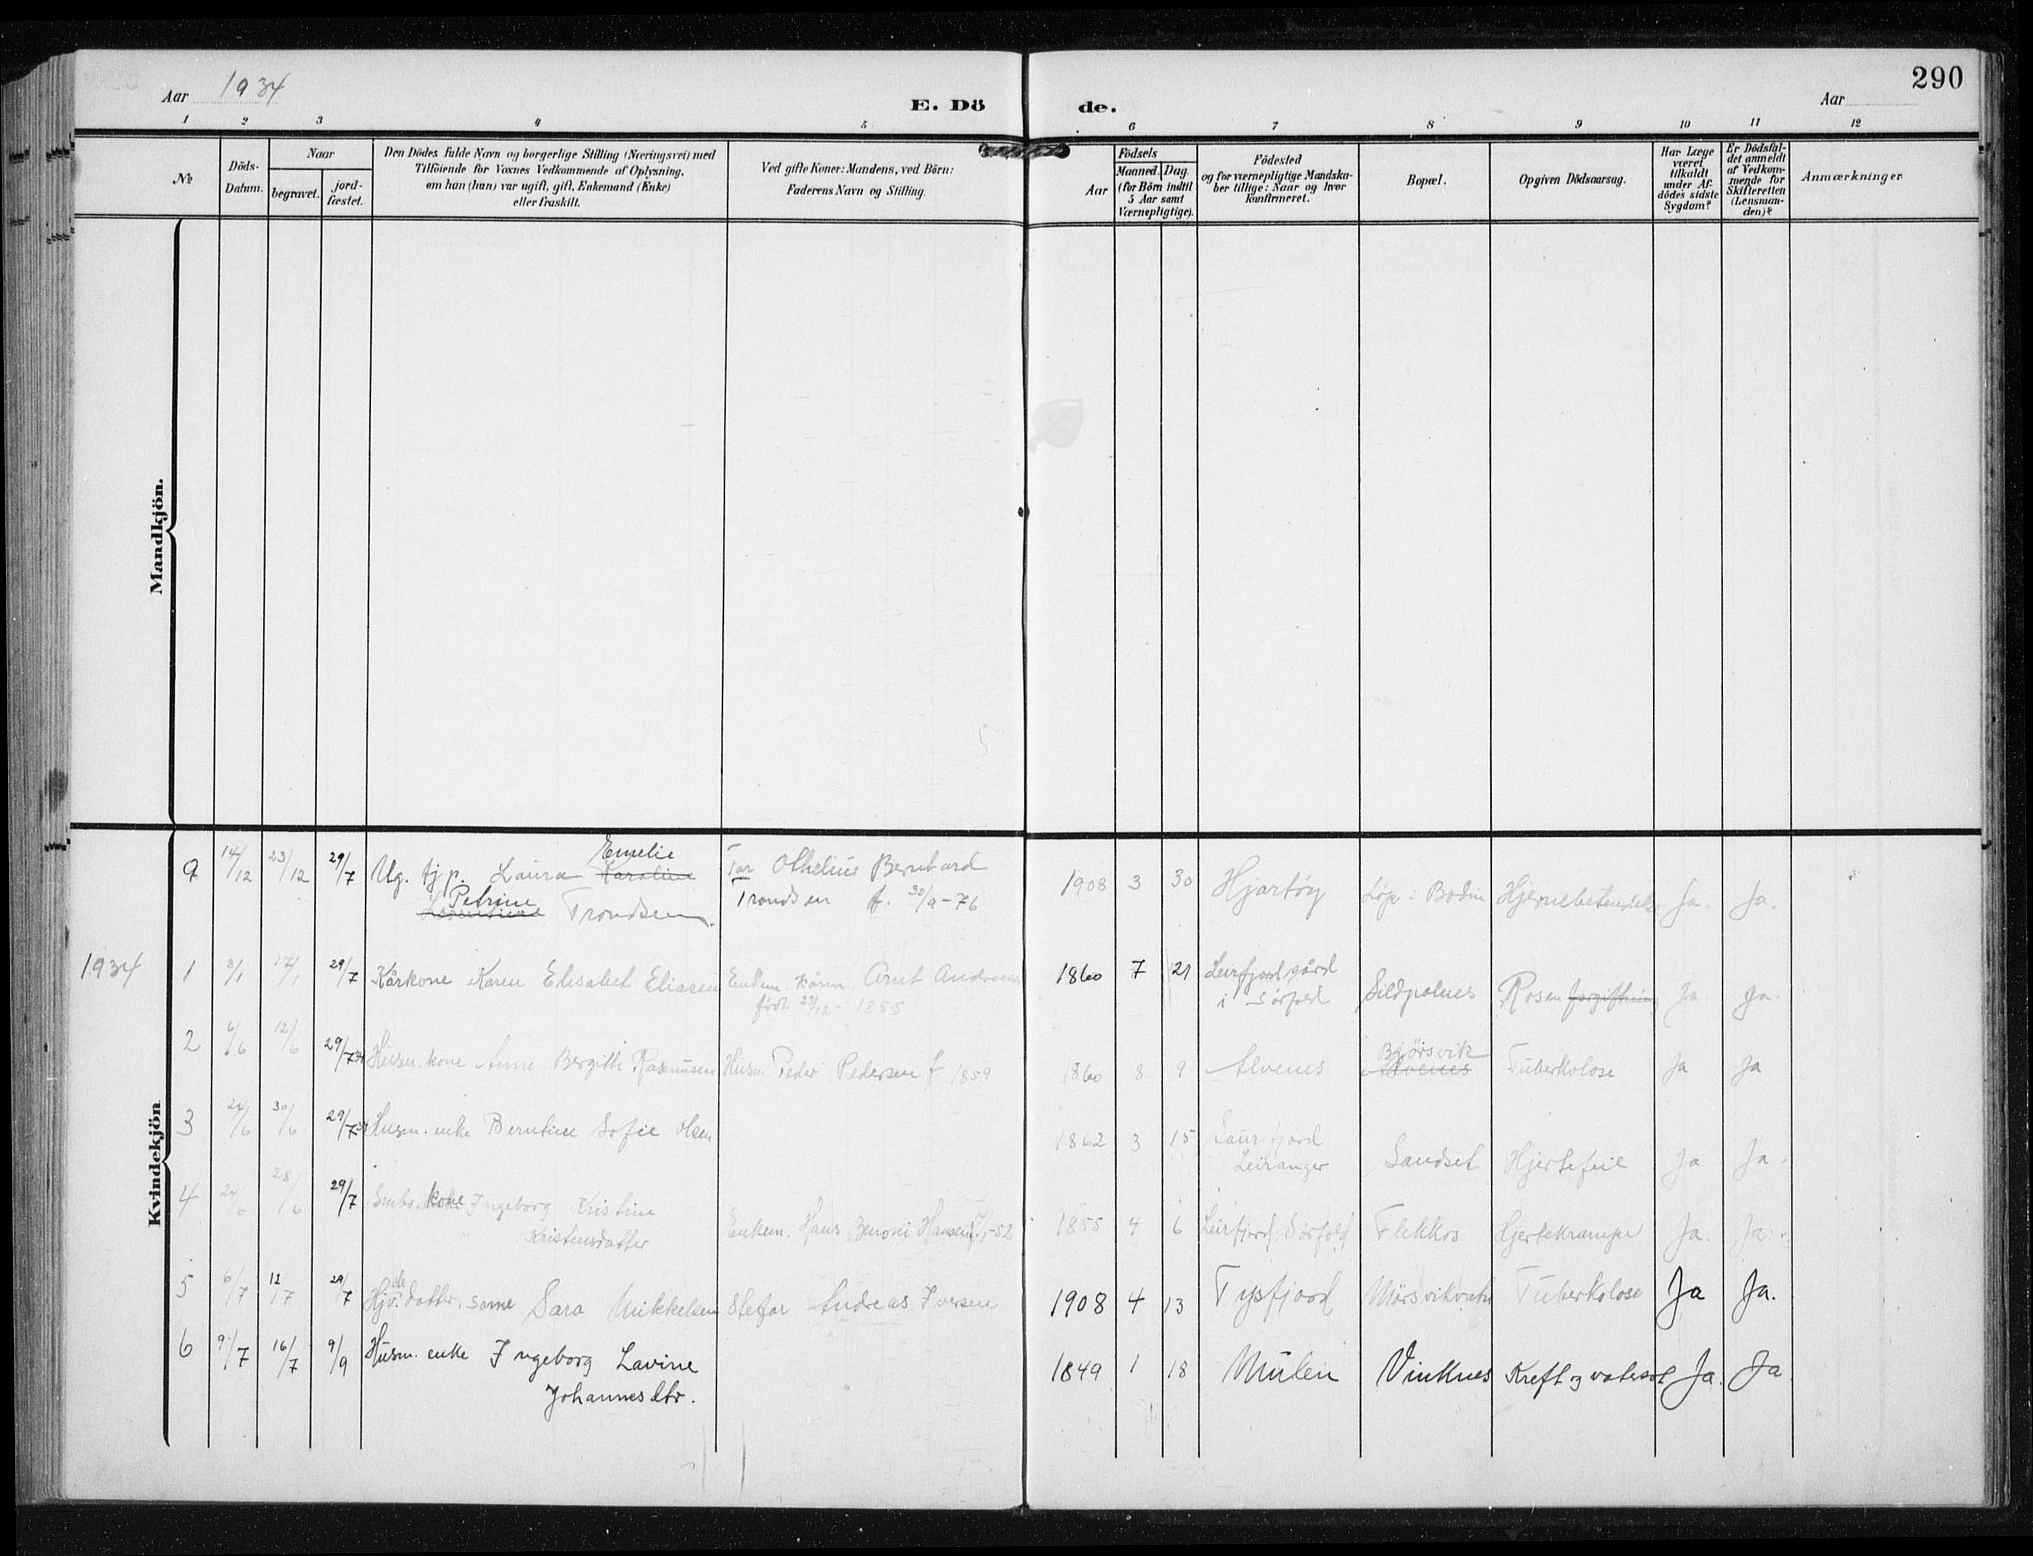 290
Aar 1934
E. Dö
de.
Aar
1 2 3 4 5 6 7 8 9 10 11 12
№
Döds-
Datum.
Naar
begravet.
jord-
fæstet.
Den Dödes fulde Navn og borgerlige Stilling (Næringsvei) med
Tilföiende for Voxnes Vedkommende af Oplysning,
om han (hun) var ugift, gift, Enkemand (Enke)
eller fraskilt.
Ved gifte Koner: Mandens, ved Börn:
Faderens Navn og Stilling.
Födsels
Aar
Maaned.
Dag.
(for Börn indtil
5 Aar samt
Værnepligtige).
Födested
og for værnepligtige Mandska-
ber tillige: Naar og hvor
konfirmeret.
Bopæl.
Opgiven Dödsaarsag.
Har Læge
været
tilkaldt
under Af-
dödes sidste
Sygdom?
Er Dödsfal-
det anmeldt
af Vedkom-
mende for
Skifteretten
(Lensman-
den)?
Anmærkninger.
Mandkjön.
Kvindekjön
9 14/12 23/12 29/7 Ug. tj.p. Laura Emelie Karoline Far Othelius Bernhard 1908 3 30 Hjartøy Løp i Bodin Ja. Ja.
Petrine Trondsen Trondsen f. 30/9-76
1934 1 3/1 29/7 Kårkone Karen Elisabet Eliasen Enkem. 1860 7 21 Leirfjord gård Sildpolnes Rosen forgiftning Ja Ja.
født 1855 i Sørfold
2 6/6 12/6 29/7 34 Husm. kone Anne Bergitte Rasmusen Husm. Peder Pedersen f 1859 1860 8 9 Alvenes Bjørsvik Alvenes Tuberkolose Ja Ja
3 24/6 30/6 29/7 34 Husm. enke Berntine Sofie Olsen 1862 3 15 Sandset Hjertefeil Ja Ja.
Leiranger
4 28/6 29/7 kone Ingeborg Kristine 1855 4 6 Leirfjord Sørfold Flekkos Hjertekrampe Ja. Ja.
Kristensdatter Enkem. Hans Benoni Hansen -52
5 6/7 12/7 29/7 datter, same Sara Mikkelsen Stefar Andreas Iversen 1908 4 13 Tysfjord Tuberkolose Ja Ja.
6 9/7 16/7 9/9 Husm. enke Ingeborg Lavine 1849 1 18 Mulen Vinknes Kreft og vatersot Ja. Ja
Johannesdtr.